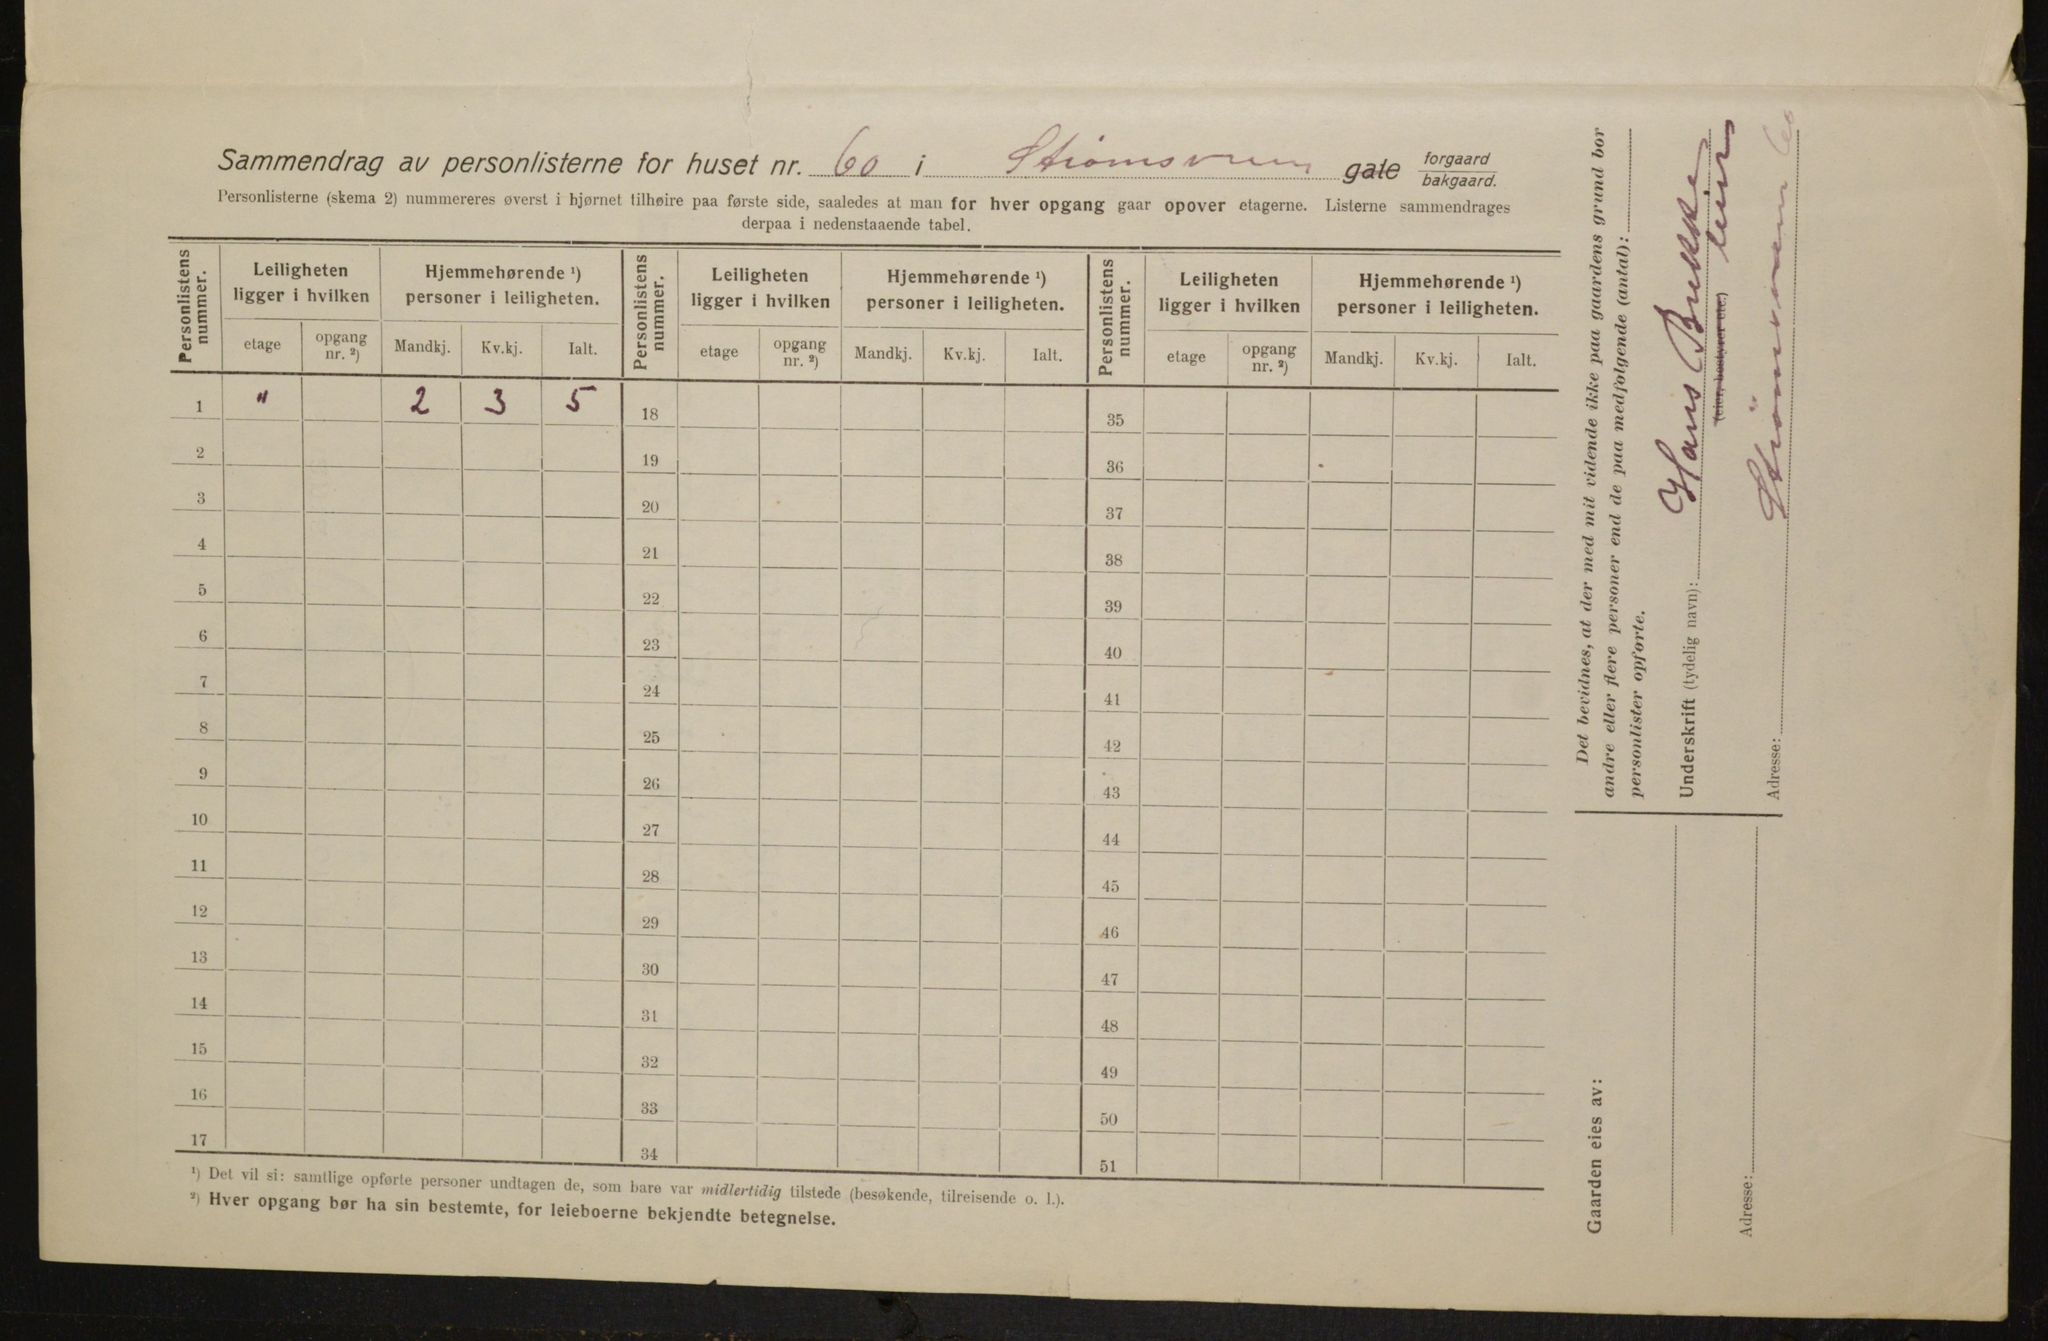 Sammendrag av personlisterne for huset nr. 60 i Strømsveien gate forgaard bakgaard.
Personlisterne (skema 2) nummereres øverst i hjørnet tilhøire paa første side, saaledes at man for hver opgang gaar opover etagerne. Listerne sammendrages
derpaa i nedenstaaende tabel.
Personlistens nummer. Leiligheten ligger i hvilken Hjemmehørende ¹) personer i leiligheten. Personlistens nummer. Leiligheten ligger i hvilken Hjemmehørende ¹) personer i leiligheten. Personlistens nummer. Leiligheten ligger i hvilken Hjemmehørende ¹) personer i leiligheten.
etage opgang nr. ²) Mandkj. Kv.kj. Ialt. etage opgang nr. ²) Mandkj. Kv.kj. Ialt. etage opgang nr. ²) Mandkj. Kv.kj. Ialt.
1 " 2 3 5 18 35
2 19 36
3 20 37
4 21 38
5 22 39
6 23 40
7 24 41
8 25 42
9 26 43
10 27 44
11 28 45
12 29 46
13 30 47
14 31 48
15 32 49
16 33 50
17 34 51
¹) Det vil si: samtlige opførte personer undtagen de, som bare var midlertidig tilstede (besøkende, tilreisende o. l.).
²) Hver opgang bør ha sin bestemte, for leieboerne bekjendte betegnelse.
Det bevidnes, at der med mit vidende ikke paa gaardens grund bor
andre eller flere personer end de paa medfølgende (antal):
personlister opførte.
Underskrift (tydelig navn): Hans Brekke
(eier, bestyrer etc.) leier
Adresse: Strömsveien 60
Gaarden eies av:
Adresse: